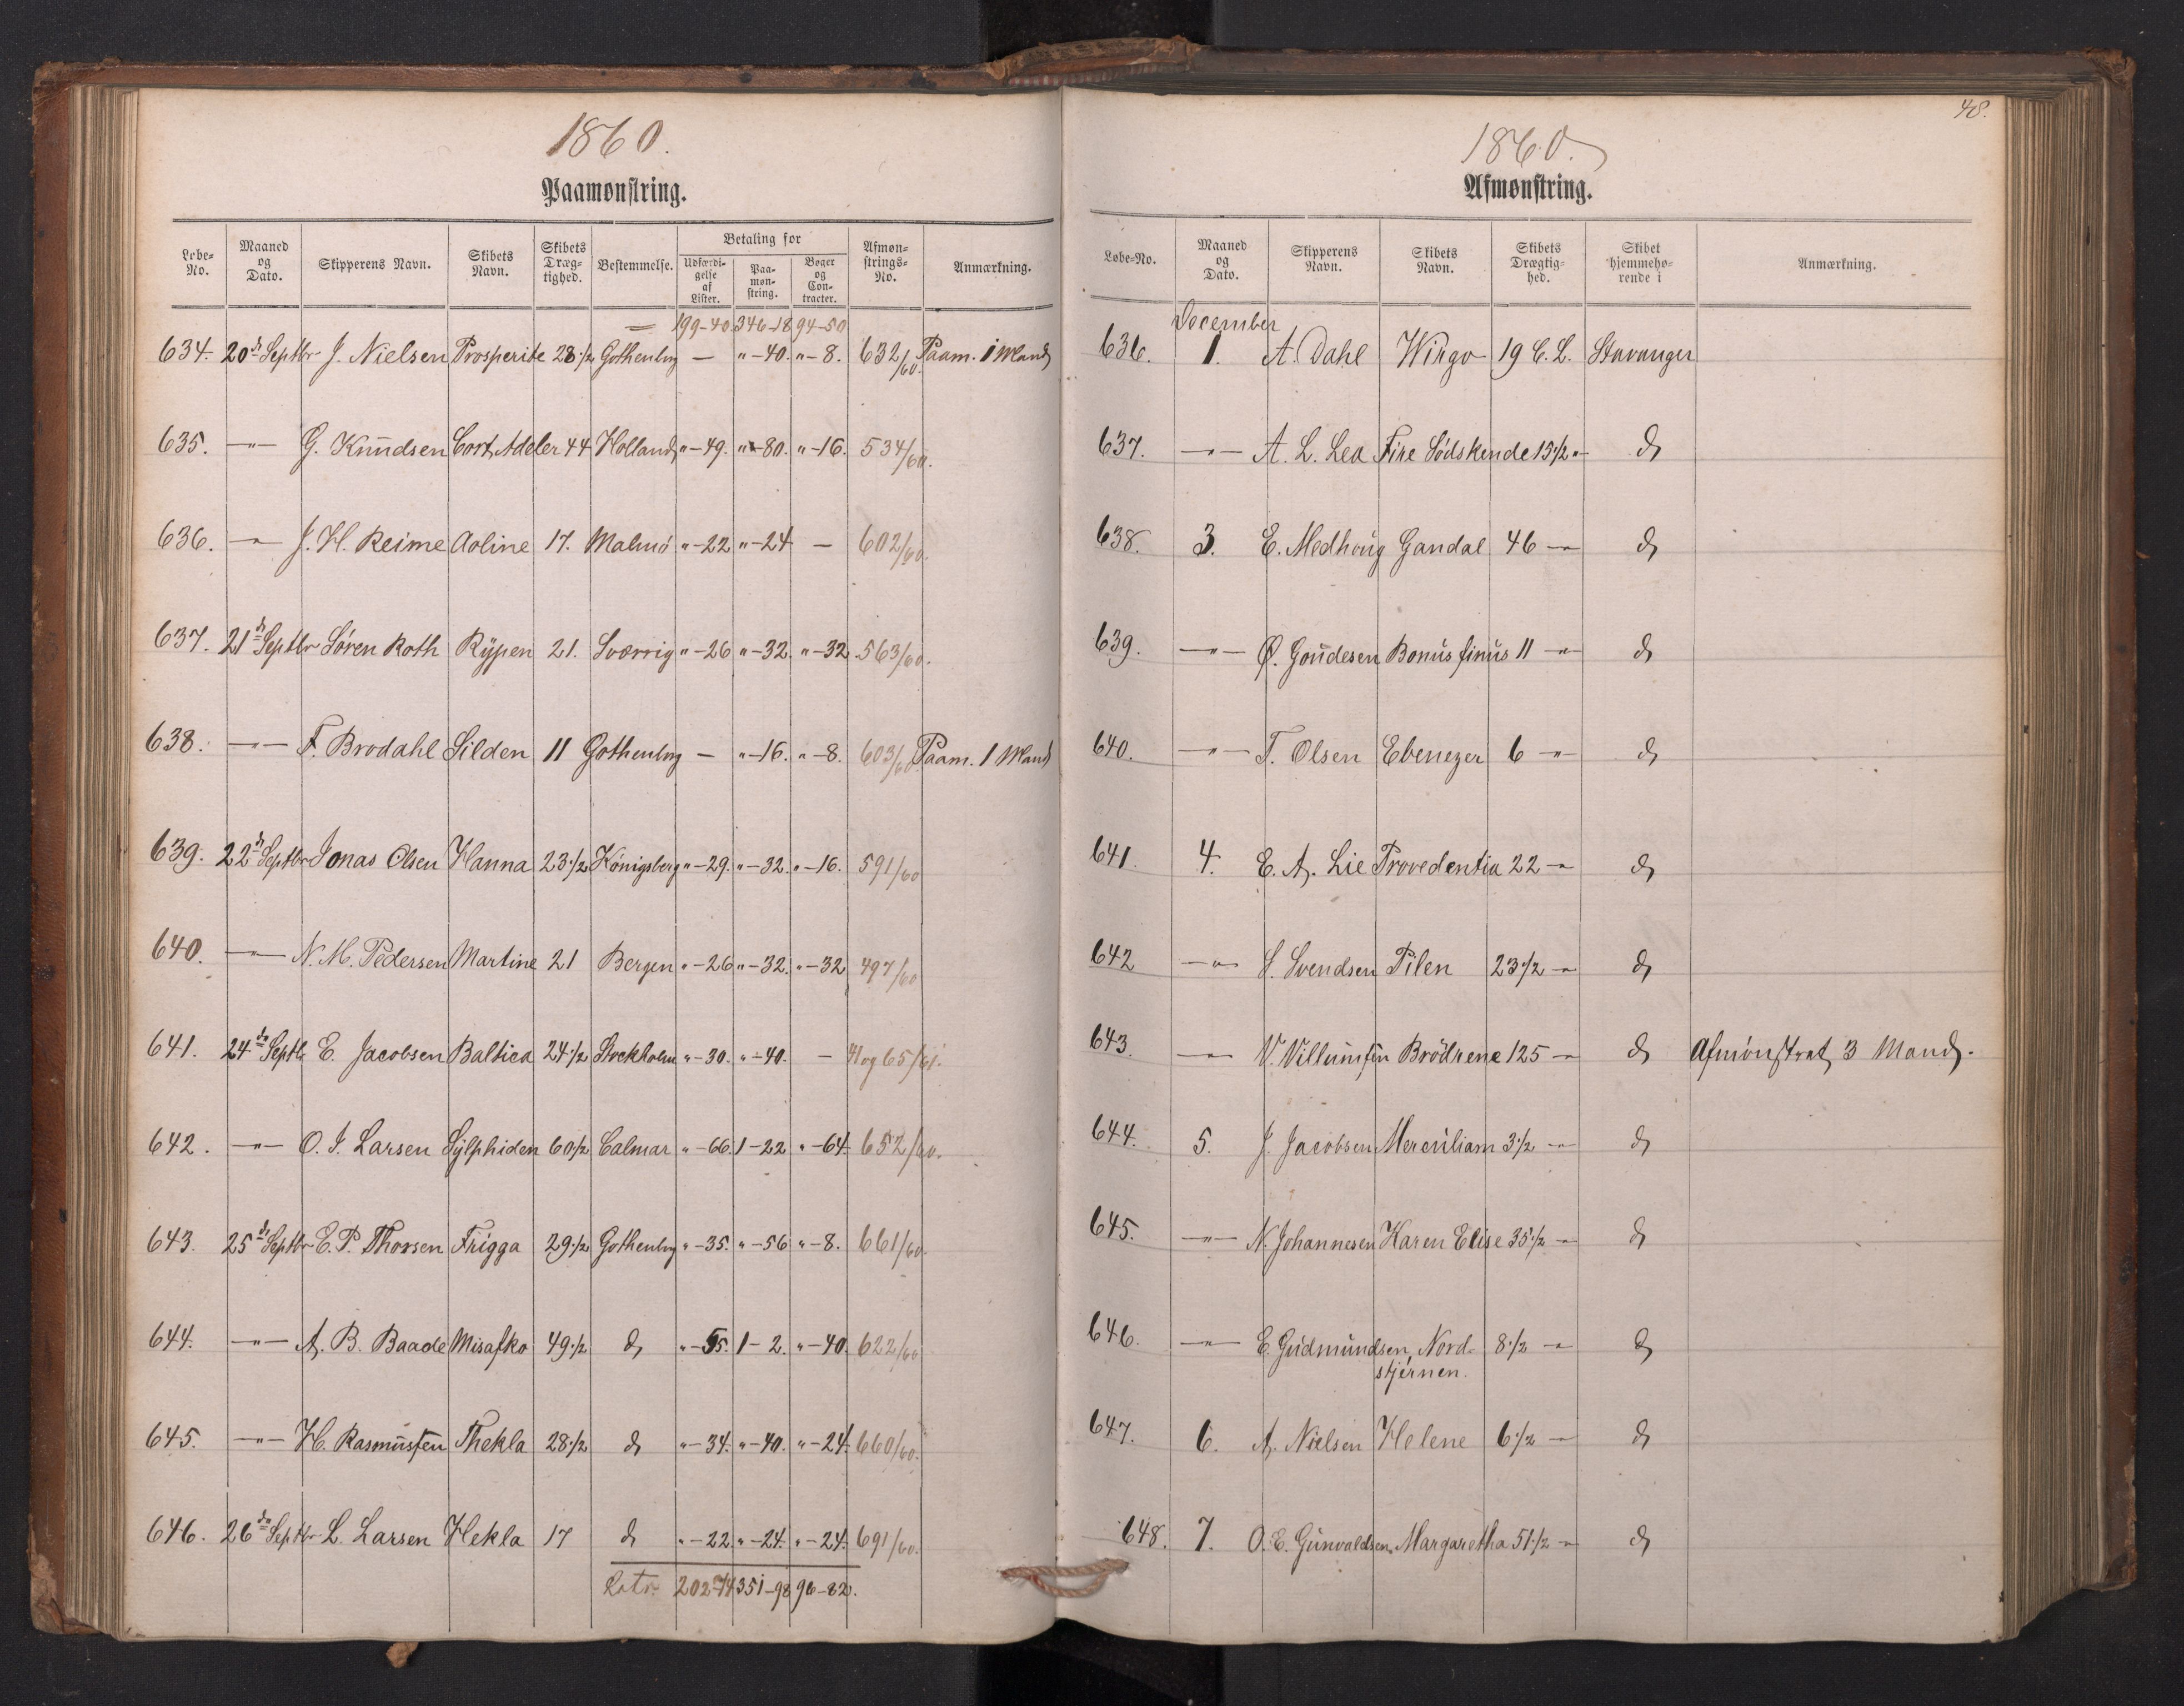 1860.
Paamønstring.
Løbe-No. Maaned og Dato. Skipperens Navn. Skibets Navn. Skibets Dræg-tighed. Bestemmelse. Betaling for Udfærdi-gelse af Lister. Paa-møn-string. Bøger og Con-tracter. Afmøn-strings-No. Anmærkning.
199-40 346-18 94-50
634. 20d Septbr J. Nielsen Prosperite 28 1/2 Gothenbrg — " -40. " -8. 632/60. Paam. 1 Mand
635. —"— G. Knudsen Cort Adeler 44 Holland " -49. " -80. " -16. 534/60.
636. —"— J. H. Reime Aoline 17. Malmö " -22 " -24 — 602/60.
637. 21d Septbr Sören Roth Rypen 21. Sverrig " -26 " -32. " -32. 563/60.
638. —"— F. Brodahl Silden 11 Gothenbrg — " -16. " -8. 603/60. Paam. 1 Mand
639. 22d Septbr Jonas Olsen Hanna 23 1/2 Königsberg " -29. " -32. " -16. 591/60
640. —"— N. M. Pedersen Martine 21 Bergen " -26 " -32. " -32 497/60
641. 24de Septb E. Jacobsen Baltica 24 1/2 Stockholm " -30. " -40. — 41 og 65/61.
642. —"— O. J. Larsen Sylphiden 60 1/2 Calmar " -66. 1-22 " -64. 652/60.
643. 25d Septbr E. P. Thorsen Frigga 29 1/2 Gothenbrg " -35. " -56 " -8. 661/60.
644. —"— A. B. Baade Misafko 49 1/2 do " -55. 1-2. " -40. 622/60
645. —"— H. Rasmussen Thekla 28 1/2 do " -34. " -40. " -24. 660/60.
646. 26de Septbr L. Larsen Hekla 17 do " -22. " -24. " -24. 691/60.
Latr. 202-74 351-98 96-82.
48.
1860.
Afmønstring.
Løbe-No. Maaned og Dato. Skipperens Navn. Skibets Navn. Skibets Drægtig-hed. Skibet hjemmehø-rende i Anmærkning.
December
636. 1. A. Dahl Wirgo 19 C. L. Stavanger
637. —"— A. L. Lea Fire Södskende 15 1/2 "— do
638. 3. E. Medhoug Gandal 46 —"— do
639. —"— Ø. Goudesen Bonus finus 11 —"— do
640. —"— T. Olsen Ebenezer 6 —"— do
641. 4. E. A. Lie Provedentia 22 —"— do
642 —"— S. Svendsen Pilen 23 1/2 —"— do
643. —"— V. Villumsen Brödrene 125 —"— do Afmönstret 3 Mand.
644. 5. J. Jacobsen Mercüliam 3 1/2 —"— do
645. —"— N. Johannesen Karen Elise 35 1/2 —"— do
646. —"— E. Gudmundsen Nord-
stjernen. 8 1/2 —"— do
647. 6. A. Nielsen Helene 6 1/2 —"— do
648. 7. O. E. Gunvaldsen Margaretha 51 1/2 —"— do